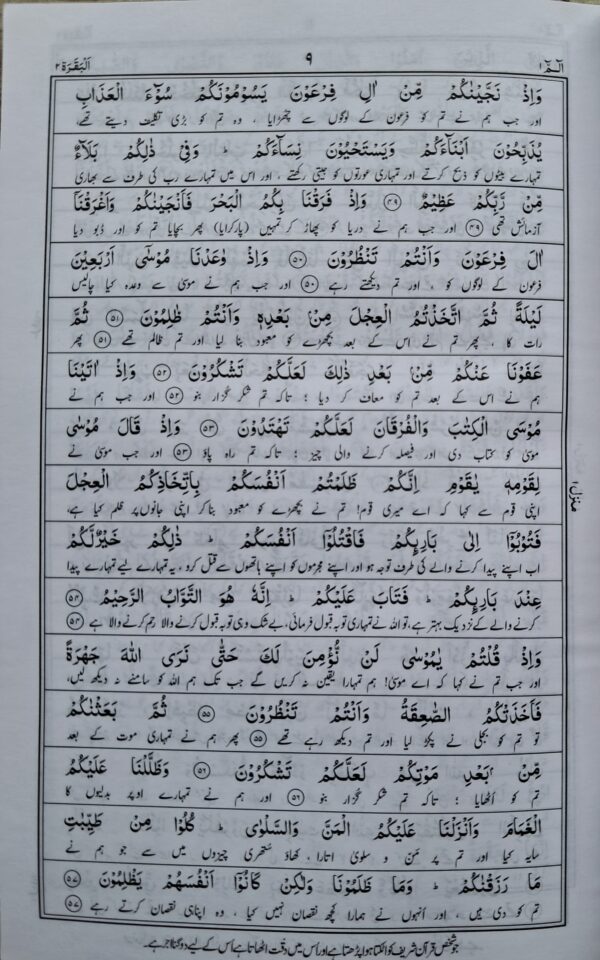 الٓمّٓ ١
٩
اَلْبَقَرَة ٢
وَاِذْ نَجَّيْنٰكُمْ مِّنْ اٰلِ فِرْعَوْنَ يَسُوْمُوْنَكُمْ سُوْٓءَ الْعَذَابِ
اور جب ہم نے تم کو فرعون کے لوگوں سے چھڑایا ، وہ تم کو بڑی تکلیف دیتے تھے،
يُذَبِّحُوْنَ اَبْنَآءَكُمْ وَيَسْتَحْيُوْنَ نِسَآءَكُمْ ؕ وَفِيْ ذٰلِكُمْ بَلَآءٌ
تمہارے بیٹوں کو ذبح کرتے اور تمہاری عورتوں کو جیتی رکھتے ، اور اس میں تمہارے رب کی طرف سے بھاری
مِّنْ رَّبِّكُمْ عَظِيْمٌ ﴿٤٩﴾ وَاِذْ فَرَقْنَا بِكُمُ الْبَحْرَ فَاَنْجَيْنٰكُمْ وَاَغْرَقْنَآ
آزمائش تھی ﴿٤٩﴾ اور جب ہم نے دریا کو پھاڑ کر تمہیں (پار کرایا) پھر بچایا تم کو اور ڈبو دیا
اٰلَ فِرْعَوْنَ وَاَنْتُمْ تَنْظُرُوْنَ ﴿٥٠﴾ وَاِذْ وٰعَدْنَا مُوْسٰٓى اَرْبَعِيْنَ
فرعون کے لوگوں کو ، اور تم دیکھتے رہے ﴿٥٠﴾ اور جب ہم نے موسیٰ سے وعدہ کیا چالیس
لَيْلَةً ثُمَّ اتَّخَذْتُمُ الْعِجْلَ مِنْۢ بَعْدِهٖ وَاَنْتُمْ ظٰلِمُوْنَ ﴿٥١﴾ ثُمَّ
رات کا ، پھر تم نے اس کے بعد بچھڑے کو معبود بنا لیا اور تم ظالم تھے ﴿٥١﴾ پھر
عَفَوْنَا عَنْكُمْ مِّنْۢ بَعْدِ ذٰلِكَ لَعَلَّكُمْ تَشْكُرُوْنَ ﴿٥٢﴾ وَاِذْ اٰتَيْنَا
ہم نے اس کے بعد تم کو معاف کر دیا ؛ تاکہ تم شکر گزار بنو ﴿٥٢﴾ اور جب ہم نے
مُوْسَى الْكِتٰبَ وَالْفُرْقَانَ لَعَلَّكُمْ تَهْتَدُوْنَ ﴿٥٣﴾ وَاِذْ قَالَ مُوْسٰى
موسیٰ کو کتاب دی اور فیصلہ کرنے والی چیز ؛ تاکہ تم راہ پاؤ ﴿٥٣﴾ اور جب موسیٰ نے
لِقَوْمِهٖ يٰقَوْمِ اِنَّكُمْ ظَلَمْتُمْ اَنْفُسَكُمْ بِاتِّخَاذِكُمُ الْعِجْلَ
اپنی قوم سے کہا کہ اے میری قوم! تم نے بچھڑے کو معبود بنا کر اپنی جانوں پر ظلم کیا ہے،
فَتُوْبُوْٓا اِلٰى بَارِىِٕكُمْ فَاقْتُلُوْٓا اَنْفُسَكُمْ ؕ ذٰلِكُمْ خَيْرٌ لَّكُمْ
اب اپنے پیدا کرنے والے کی طرف توجہ ہو اور اپنے مجرموں کو اپنے ہاتھوں سے قتل کرو، یہ تمہارے لیے تمہارے پیدا
عِنْدَ بَارِىِٕكُمْ ؕ فَتَابَ عَلَيْكُمْ ؕ اِنَّهٗ هُوَ التَّوَّابُ الرَّحِيْمُ ﴿٥٤﴾
کرنے والے کے نزدیک بہتر ہے، تو اللہ نے تمہاری توبہ قبول فرمائی، بے شک وہی توبہ قبول کرنے والا رحم کرنے والا ہے ﴿٥٤﴾
وَاِذْ قُلْتُمْ يٰمُوْسٰى لَنْ نُّؤْمِنَ لَكَ حَتّٰى نَرَى اللّٰهَ جَهْرَةً
اور جب تم نے کہا کہ اے موسیٰ! ہم تمہارا یقین نہ کریں گے جب تک ہم اللہ کو سامنے نہ دیکھ لیں،
فَاَخَذَتْكُمُ الصّٰعِقَةُ وَاَنْتُمْ تَنْظُرُوْنَ ﴿٥٥﴾ ثُمَّ بَعَثْنٰكُمْ
تو تم کو بجلی نے پکڑ لیا اور تم دیکھ رہے تھے ﴿٥٥﴾ پھر ہم نے تمہاری موت کے بعد
مِّنْۢ بَعْدِ مَوْتِكُمْ لَعَلَّكُمْ تَشْكُرُوْنَ ﴿٥٦﴾ وَظَلَّلْنَا عَلَيْكُمُ
تم کو اُٹھایا ؛ تاکہ تم شکر گزار بنو ﴿٥٦﴾ اور ہم نے تمہارے اوپر بدلیوں کا
الْغَمَامَ وَاَنْزَلْنَا عَلَيْكُمُ الْمَنَّ وَالسَّلْوٰى ؕ كُلُوْا مِنْ طَيِّبٰتِ
سایہ کیا اور تم پر مَن و سلویٰ اتارا، کھاؤ ستھری چیزوں میں سے جو ہم نے
مَا رَزَقْنٰكُمْ ؕ وَمَا ظَلَمُوْنَا وَلٰكِنْ كَانُوْٓا اَنْفُسَهُمْ يَظْلِمُوْنَ ﴿٥٧﴾
تم کو دی ہیں ، اور انہوں نے ہمارا کچھ نقصان نہیں کیا ، وہ اپنا ہی نقصان کرتے رہے ﴿٥٧﴾
منزل ۱
جو شخص قرآن شریف کو اٹکتا ہوا پڑھتا ہے اور اس میں دقت اٹھاتا ہے اُس کے لیے دوگنا اجر ہے۔